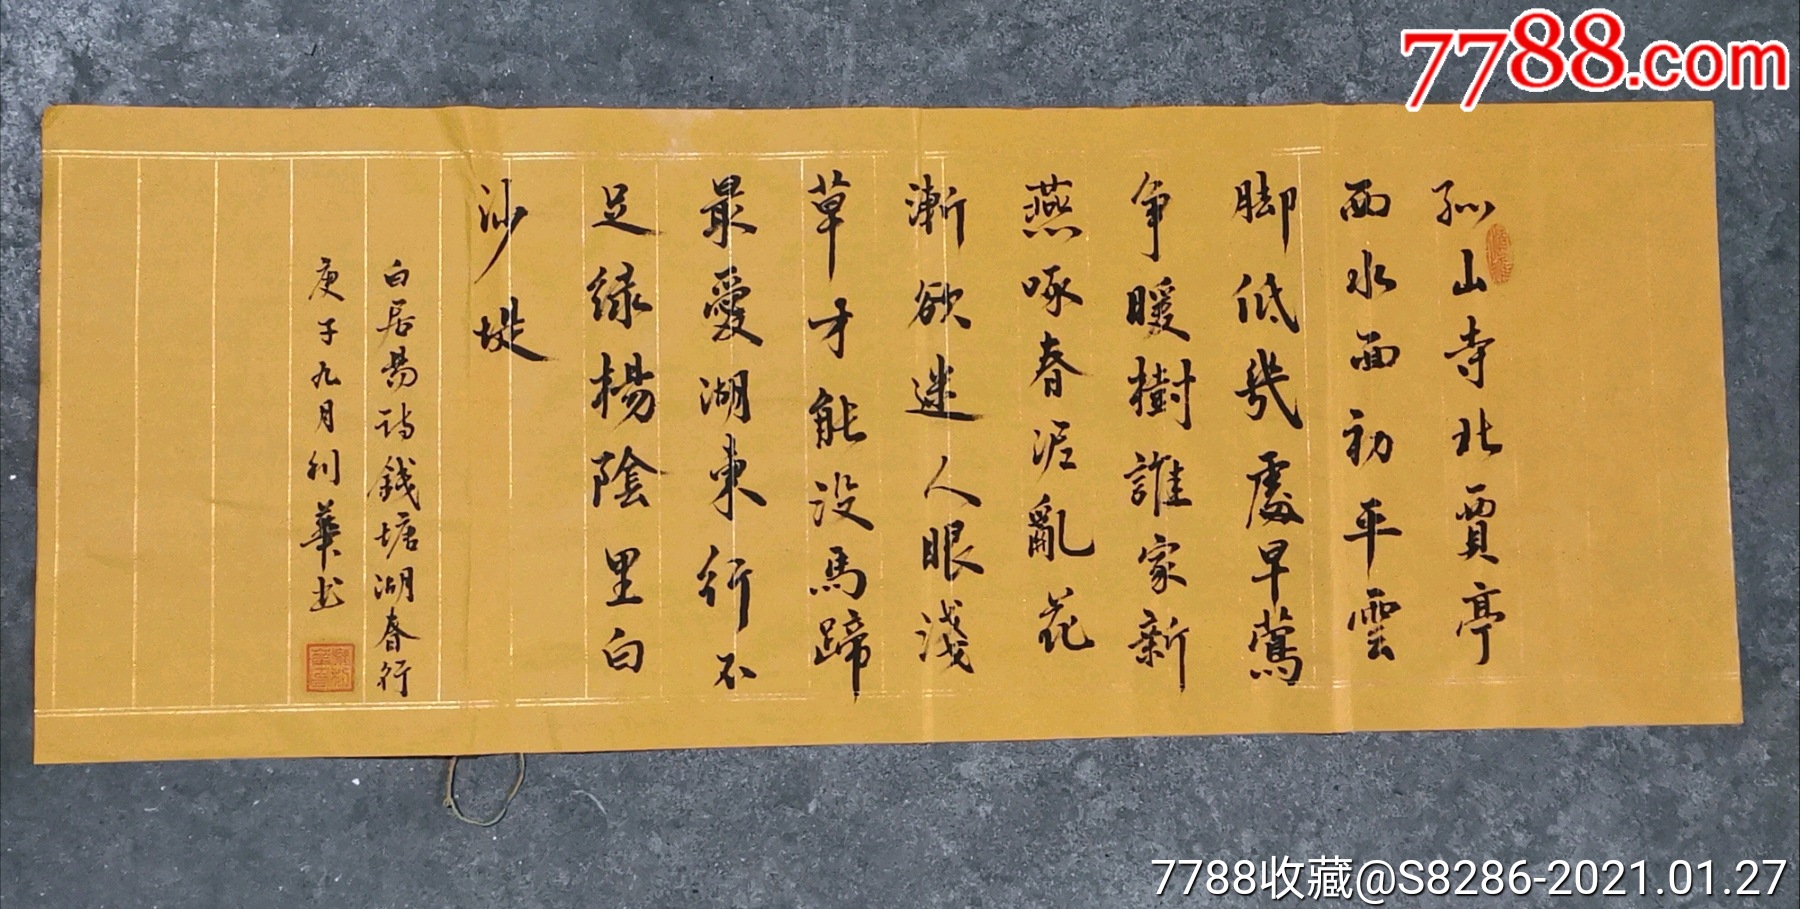 7788.com
孤山寺北賈亭
西水面初平雲
脚低幾處早鶯
争暖樹誰家新
燕啄春泥亂花
漸欲迷人眼淺
草才能没馬蹄
最愛湖東行不
足绿楊陰里白
沙堤
白居易诗錢塘湖春行
庚子九月利華书
7788收藏@S8286-2021.01.27